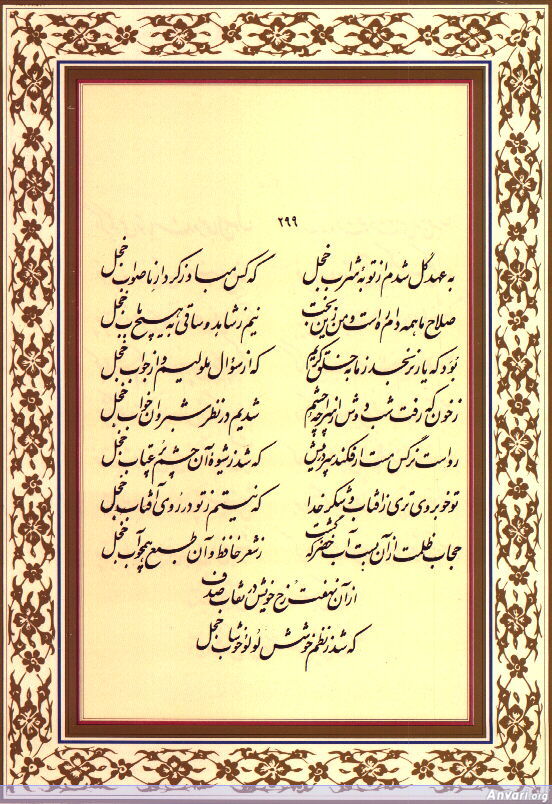 ۲۹۹
به عهد گل شدم از توبهٔ شراب خجل که کس مباد ز کردار ناصواب خجل
صلاح ما همه دام ره است و من زین بحث نیم ز شاهد و ساقی به هیچ باب خجل
بود که یار نرنجد ز ما به خلق کریم که از سؤال ملولیم و از جواب خجل
ز خون که رفت شب دوش از سراچه چشم شدیم در نظر شبروان خواب خجل
رواست نرگس مست ار فکند سر در پیش که شد ز شیوه آن چشم پر عتاب خجل
تو خوبروی تری ز آفتاب و شکر خدا که نیستم ز تو در روی آفتاب خجل
حجاب ظلمت از آن بست آب خضر که گشت ز شعر حافظ و آن طبع همچو آب خجل
از آن نهفت رخ خویش در نقاب صدف
که شد ز نظم خوشش لؤلؤ خوشاب خجل
Anvari.org